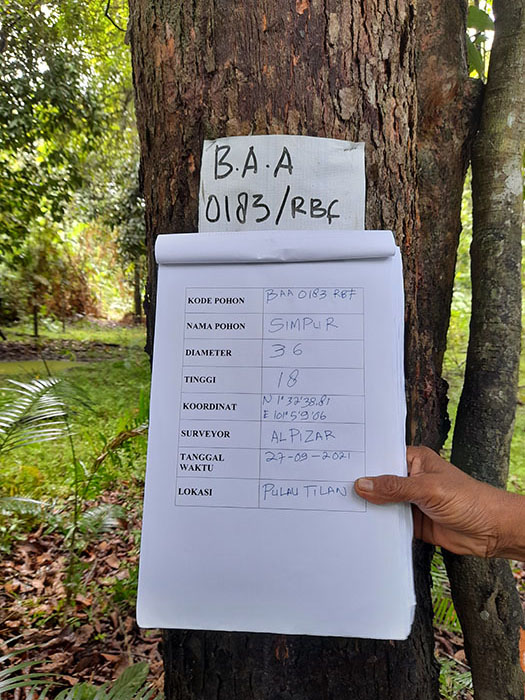 B.A.A
0183/RBF
KODE POHON BAA 0183 RBF
NAMA POHON SIMPUR
DIAMETER 36
TINGGI 18
KOORDINAT N 1°37'38.81
E 101°5'9"06
SURVEYOR ALPIZAR
TANGGAL 27-09-2021
WAKTU
LOKASI PULAU TILAN